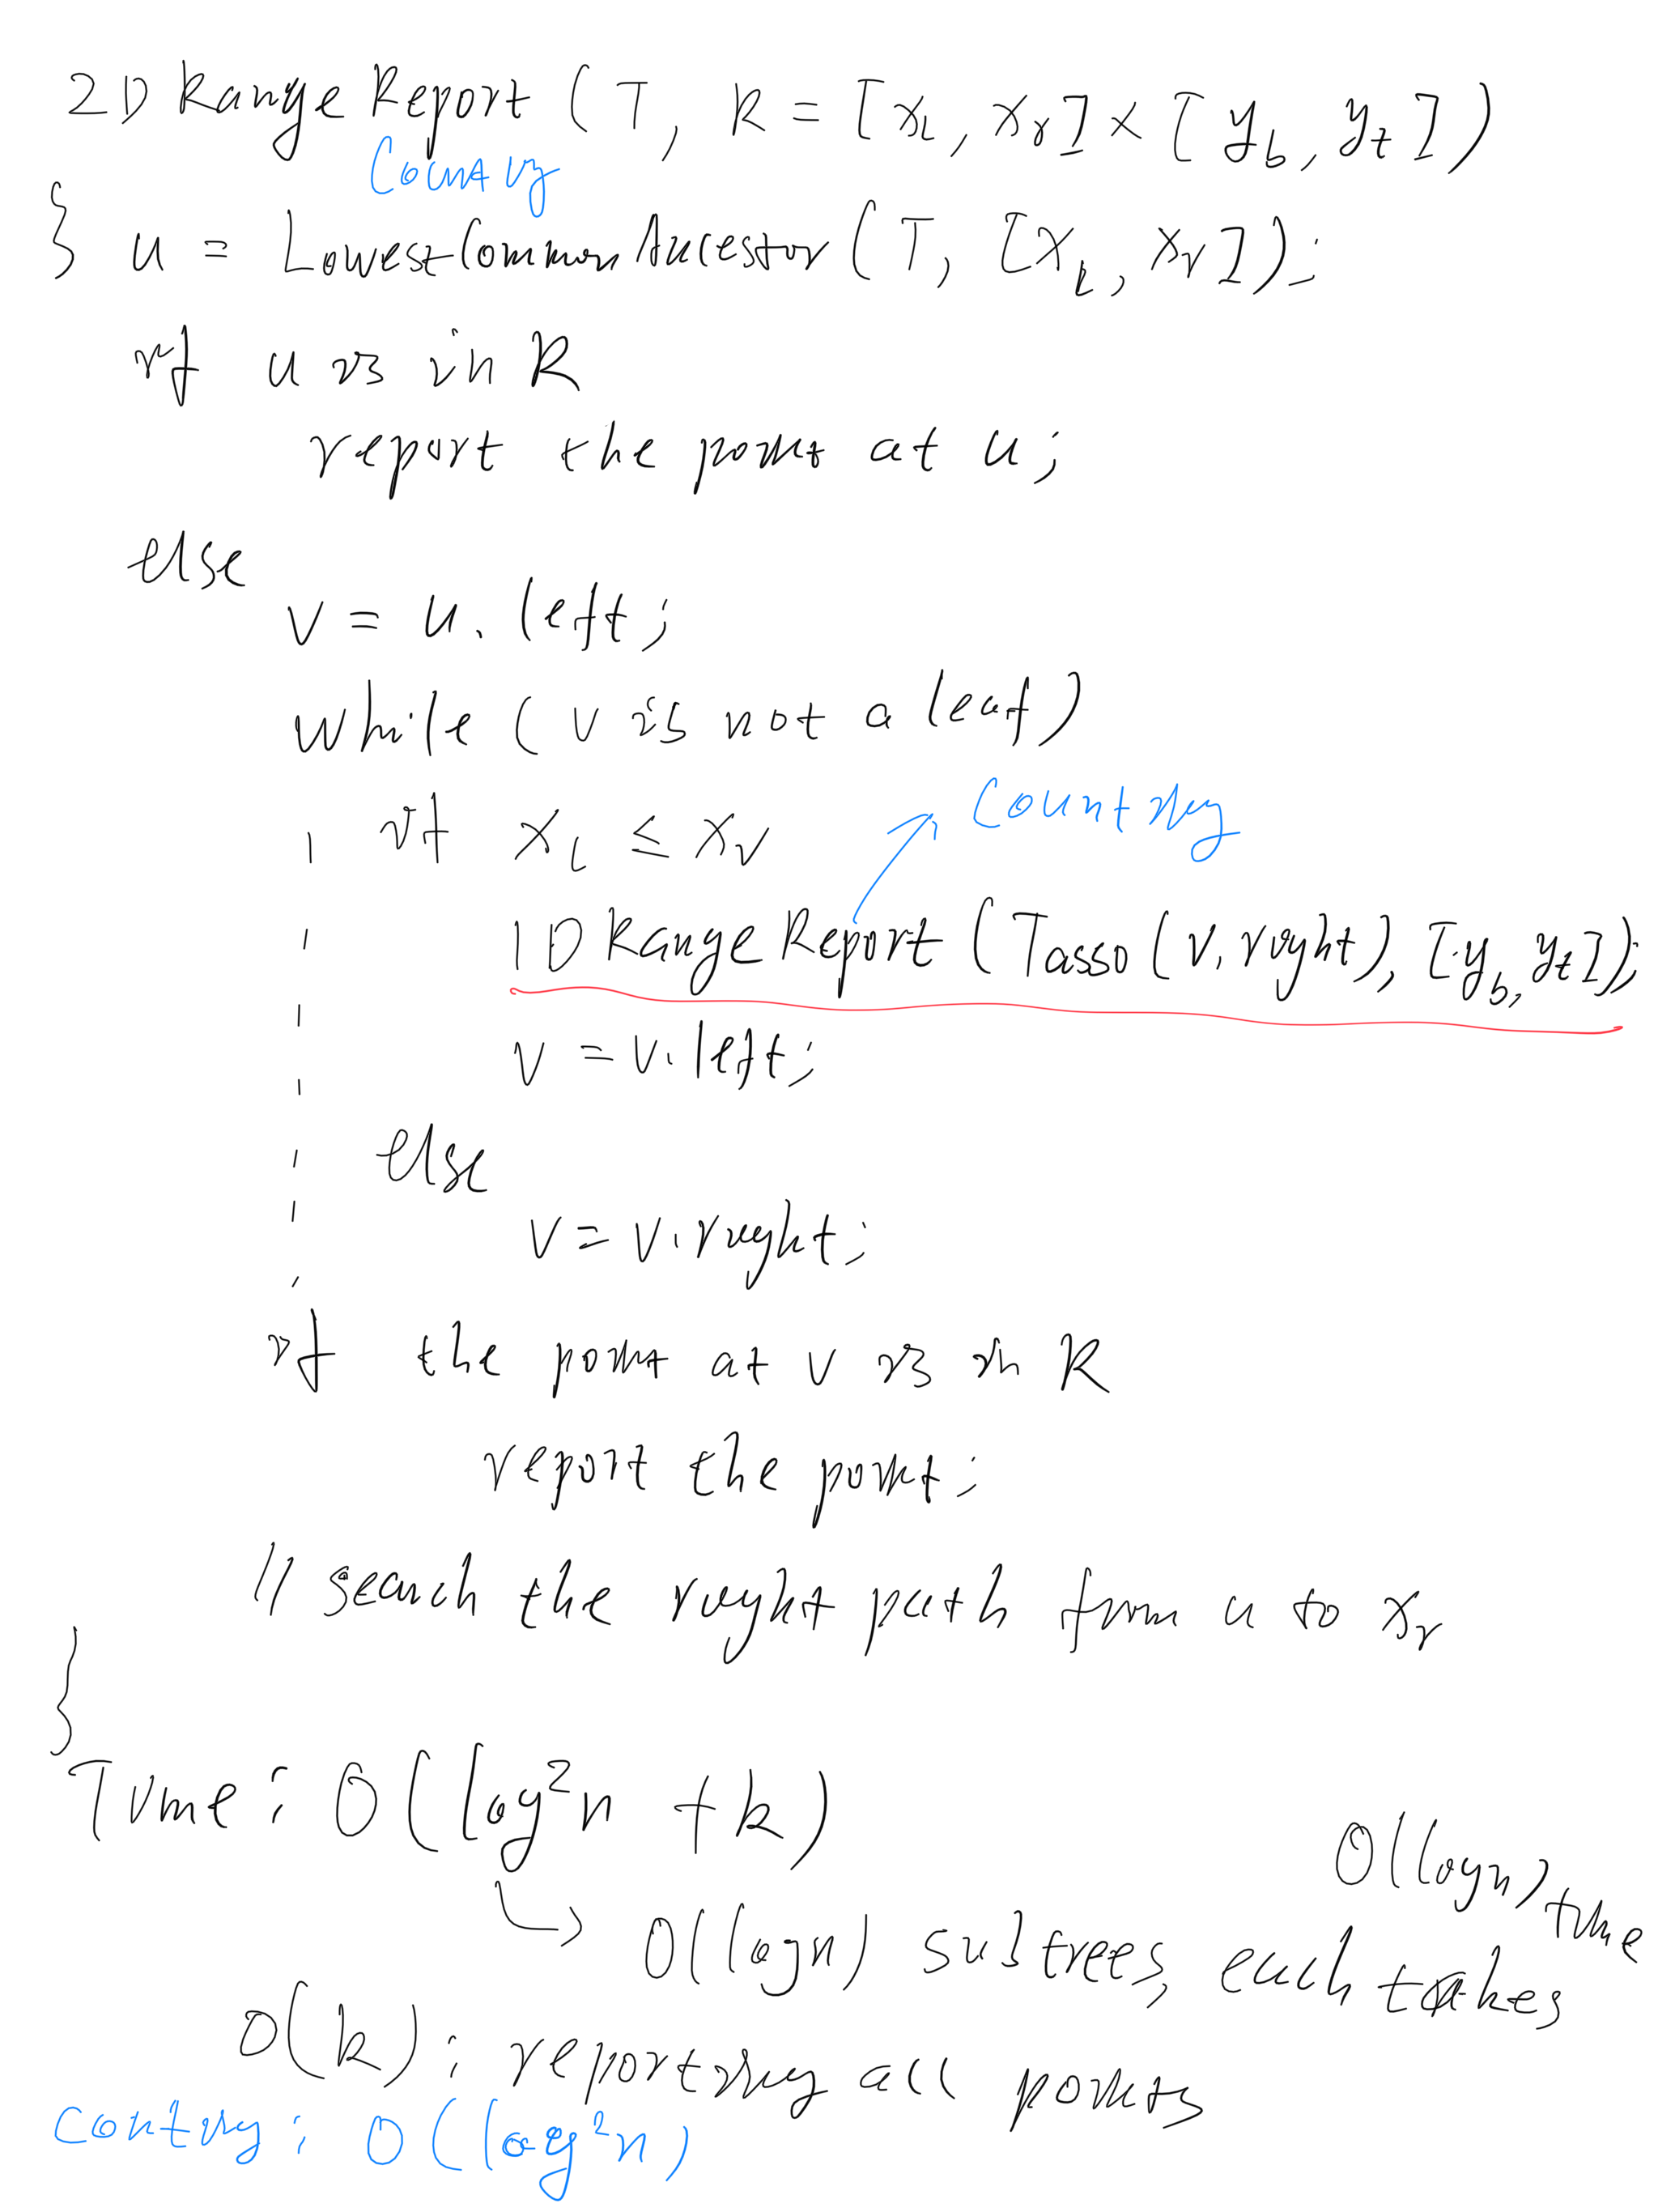 2D Range Report (T, R = [x_l, x_r] × [y_b, y_t])
Counting
{ u = LowestCommonAncestor (T, [x_l, x_r]);
if u is in R
report the point at u;
else
v = u.left;
while (v is not a leaf)
if x_l ≤ x_v
Counting
1D Range Report (Tasso(v.right), [y_b, y_t]);
v = v.left;
else
v = v.right;
if the point at v is in R
report the point;
// search the right path from u to x_r
}
Time: O(log²n + k)
↳ O(logn) subtrees, each takes O(logn) time
O(k): reporting all points
Conting: O(log²n)